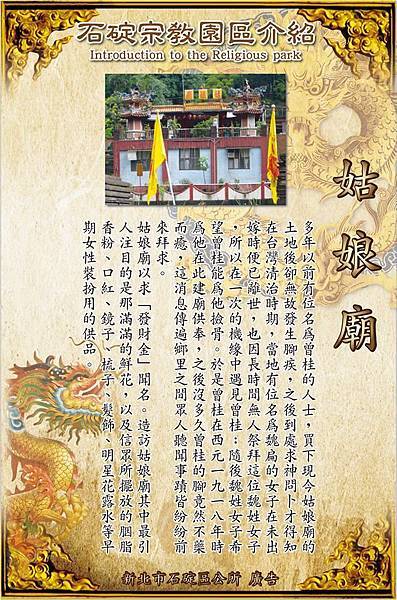 石碇宗教園區介紹
Introduction to the Religious park
姑娘廟
多年以前有位名為曾桂的人士，買下現今姑娘廟的
土地後卻無故發生腳疾，之後到處求神問卜才得知
在台灣清治時期，當地有位名為魏扁的女子在未出
嫁時便已離世，也因長時間無人祭拜這位魏姓女子
，所以在一次的機緣中遇見曾桂；隨後魏姓女子希
望曾桂能為他撿骨。於是曾桂在西元一九一八年時
為他在此建廟供奉，之後沒多久曾桂的腳竟然不藥
而癒，這消息傳遍鄉里之間眾人聽聞事蹟皆紛紛前
來拜求。
姑娘廟以求「發財金」聞名。造訪姑娘廟其中最引
人注目的是那滿滿的鮮花，以及信眾所擺放的胭脂
香粉、口紅、鏡子、梳子、髮飾、明星花露水等早
期女性裝扮用的供品。
新北市石碇區公所 廣告